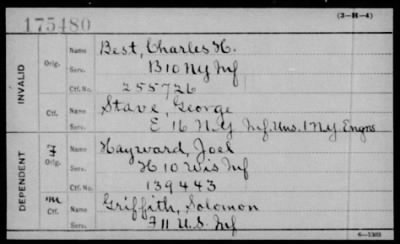 175480
(3-H-4)
INVALID
Orig.
Name Best, Charles H.
Serv. B 10 Ny Inf
Ctf. No. 255726
Ctf.
Name Stave, George
Serv. E 16 N.Y. Inf. Uns. 1 N.Y. Engrs
DEPENDENT
F
Orig.
Name Hayward, Joel
Serv. H 10 Wis Inf
Ctf. No. 139443
M
Ctf.
Name Griffith, Solomon
Serv. F 11 U.S. Inf